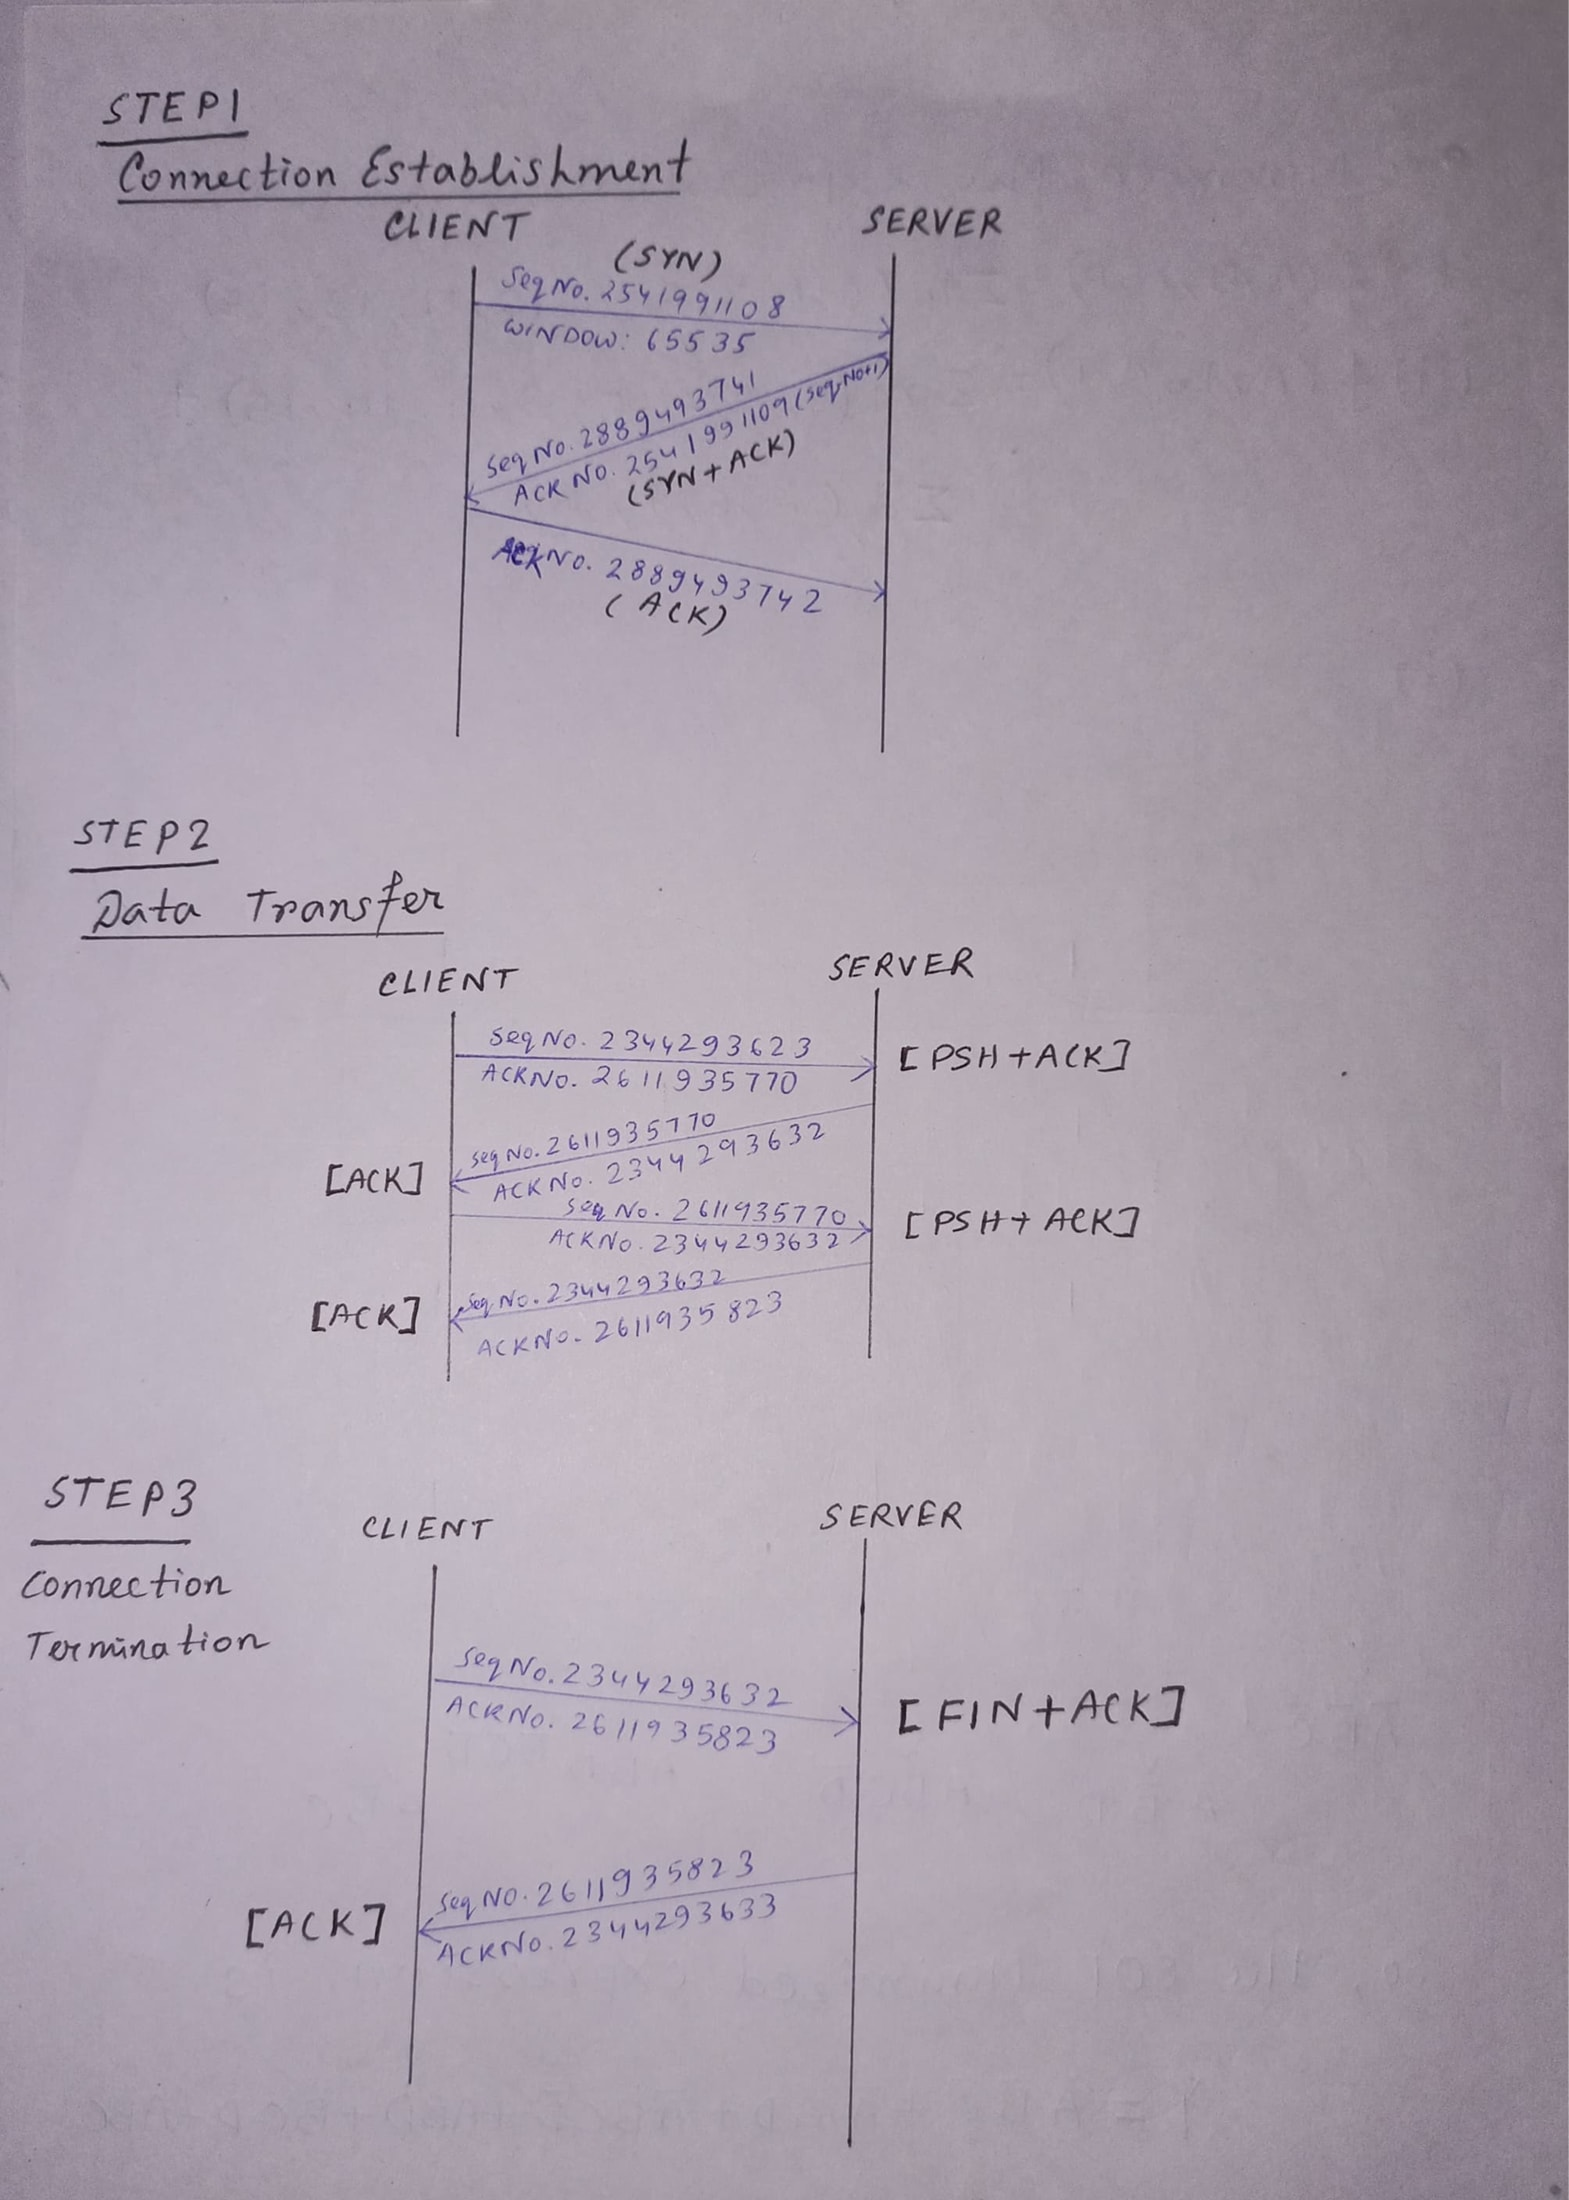 STEP1
Connection Establishment
CLIENT
SERVER
(SYN)
Seq No. 2541991108
WINDOW: 65535
Seq No. 2889493741
ACK NO. 2541991109 (Seq No+1)
(SYN + ACK)
ACK NO. 2889493742
(ACK)
STEP2
Data Transfer
CLIENT
SERVER
Seq No. 2344293623
[PSH + ACK]
ACK NO. 2611935770
Seq No. 2611935770
[ACK]
ACK NO. 2344293632
Seq No. 2611935770
[PSH + ACK]
ACK NO. 2344293632
Seq No. 2344293632
[ACK]
ACK NO. 2611935823
STEP3
CLIENT
SERVER
Connection
Termination
Seq No. 2344293632
[FIN + ACK]
ACK NO. 2611935823
Seq NO. 2611935823
[ACK]
ACK NO. 2344293633